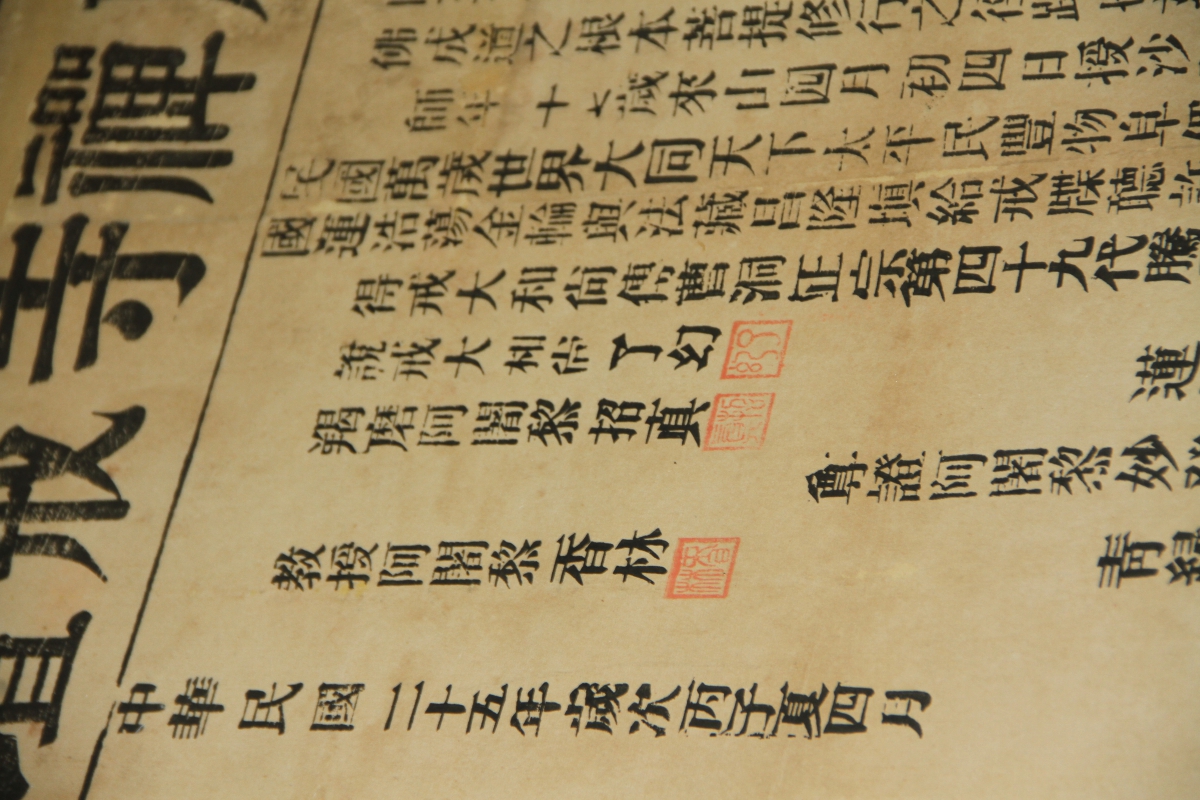 禪寺
佛成道之根本菩提修行之徑
師年十七歲來山四月初四日授沙
民國萬歲世界大同天下太平民豐物阜
國運浩蕩金輪與法藏昌隆填給戒牒聽許
得戒大和尚傳曹洞正宗第四十九代騰
說戒大和尚了幻
蓮
羯磨阿闍黎招真
尊證阿闍黎妙
教授阿闍黎香林
青
中華民國二十五年歲次丙子夏四月